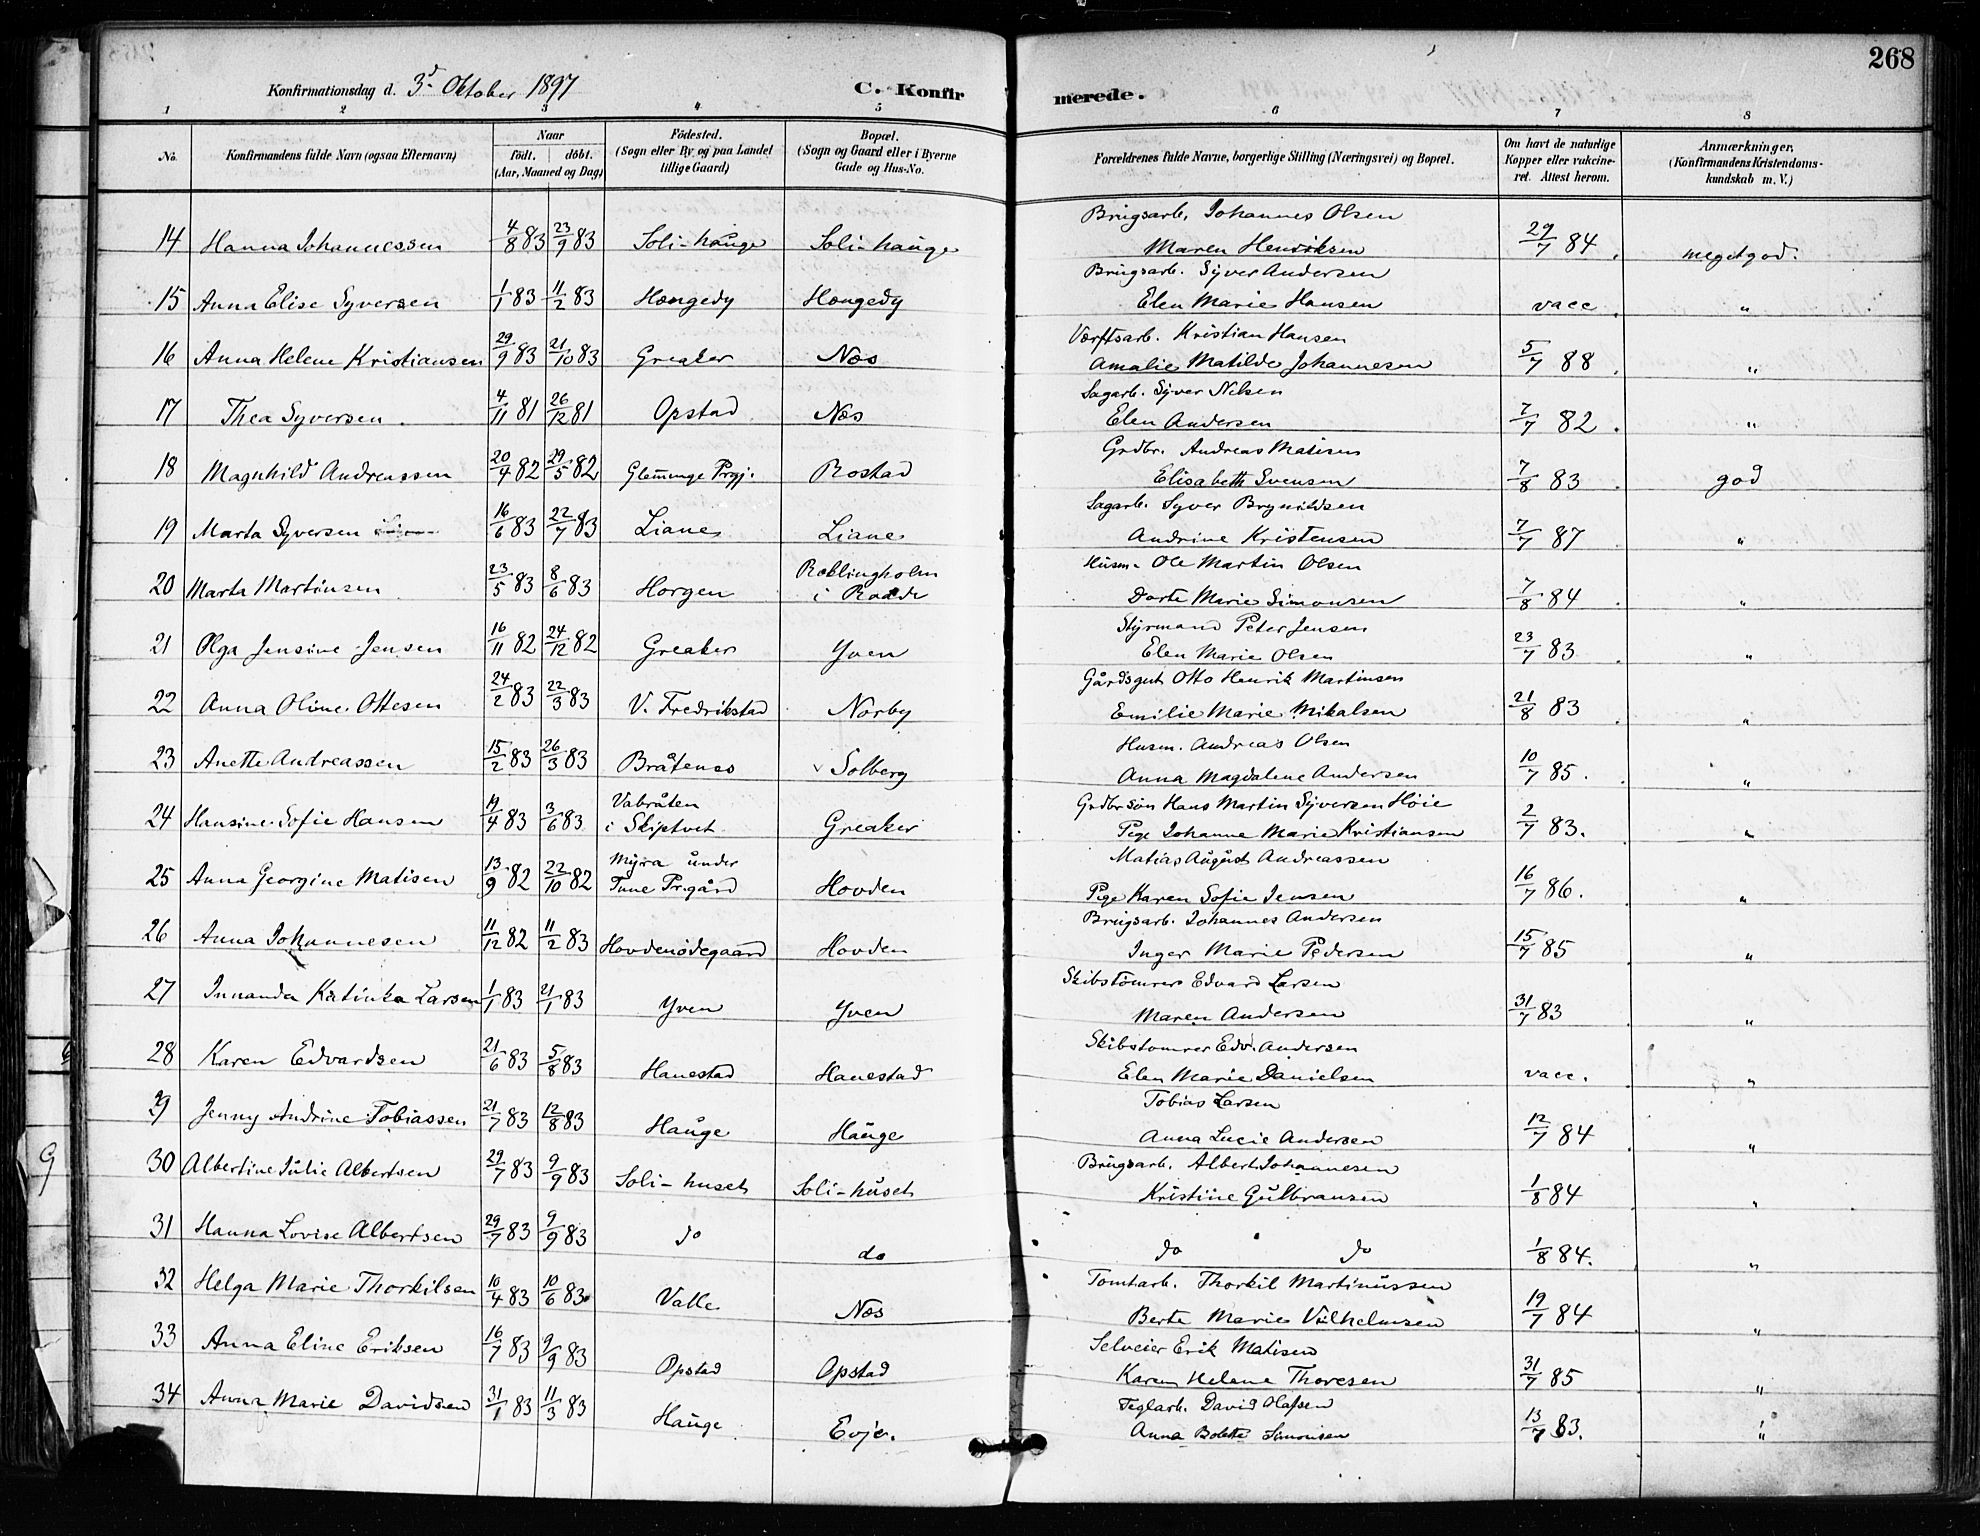 268
Konfirmationsdag d. 3d Oktober 1897 C. Konfirmerede.
1 2 3 4 5 6 7 8
No. Konfirmandens fulde Navn (ogsaa Efternavn) Naar født. døbt. (Aar, Maaned og Dag) Fødested. (Sogn eller By og paa Landet tillige Gaard) Bopæl. (Sogn og Gaard eller i Byerne Gade og Hus-No. Forældrenes fulde Navne, borgerlige Stilling (Næringsvei) og Bopæl. Om havt de naturlige Kopper eller vakcineret. Attest herom. Anmærkninger, (Konfirmandens Kristendomskundskab m. V.)
Brugsarb. Johannes Olsen
14 Hanna Johannessen 4/8 83 23/9 83 Soli-hauge Soli-hauge Maren Henriksen 29/7 84 megetgod.
Brugsarb. Syver Andersen
15 Anna Elise Syversen 1/1 83 11/2 83 Hængedy Hængedy Elen Marie Hansen vacc. "
Værftsarb. Kristian Hansen
16 Anna Helene Kristiansen 29/9 83 21/10 83 Greaker Næs Amalie Matilde Johannesen 5/7 88 "
Sagarb. Syver Nilsen
17 Thea Syversen 4/11 81 26/12 81 Opstad Næs Elen Andersen 7/7 82 "
Grdbr. Andreas Matisen
18 Magnhild Andreassen 20/4 82 29/5 82 Glemminge Prgj. Rostad Elisabeth Svensen 7/8 83 god
Sagarb. Syver Brynildsen
19 Marta Syversen 16/6 83 22/7 83 Liane Liane Andrine Kristensen 7/7 87 "
Husm. Ole Martin Olsen
20 Marta Martinsen 23/5 83 8/6 83 Horgen Røblingholm i Raade Dorte Marie Simonsen 7/8 84 "
Styrmand Peter Jensen
21 Olga Jensine Jensen 16/11 82 24/12 82 Greaker Yven Elen Marie Olsen 23/7 83 "
Gårdsgut Otto Henrik Martinsen
22 Anna Oline Ottesen 24/2 83 22/3 83 V. Fredrikstad Norby Emilie Marie Mikalsen 21/8 83 "
Husm. Andreas Olsen
23 Anette Andreassen 15/2 83 26/3 83 Bråtenes Solberg Anna Magdalene Andersen 10/7 85. "
Grdbr søn Hans Martin Syversen Høie
24 Hansine Sofie Hansen 19/4 83 3/6 83 Vabråten i Skiptvet Greaker Pige Johanne Marie Kristiansen 2/7 83. "
Matias August Andreassen
25 Anna Georgine Matisen 13/9 82 22/10 82 Myra under Tune Pr.gård Hovden Pige Karen Sofie Jensen 16/7 86. "
Brugsarb. Johannes Andersen
26 Anna Johannesen 11/12 82 11/2 83 Hovdenødegaard Hovden Inger Marie Pedersen 15/7 85 "
Skibstømrer Edvard Larsen
27 Innanda Katinka Larsen 1/1 83 21/1 83 Yven Yven Maren Andersen 31/7 83 "
Skibstømrer Edv. Andersen
28 Karen Edvardsen 21/6 83 5/8 83 Hanestad Hanestad Elen Marie Danielsen vacc. "
Tobias Larsen
29 Jenny Andrine Tobiassen 21/7 83 12/8 83 Hauge Hauge Anna Lucie Andersen 12/7 84 "
Brugsarb. Albert Johannesen
30 Albertine Julie Albertsen 29/7 83 9/9 83 Soli-huset Soli-huset Kristine Gulbransen 1/8 84 "
31 Hanna Lovise Albertsen 29/7 83 9/9 83 do do do do 1/8 84. "
Tomtarb. Thorkil Martinussen
32 Helga Marie Thorkilsen 10/4 83 10/6 83 Valle Næs Berte Marie Vilhelmsen 19/7 84 "
Selveier Erik Matisen
33 Anna Eline Eriksen 16/7 83 9/9 83 Opstad Opstad Karen Helene Thoresen 31/7 85 "
Teglarb. David Olafsen
34 Anna Marie Davidsen 31/1 83 11/3 83 Hauge Evje. Anna Bolette Simonsen 13/7 83. "